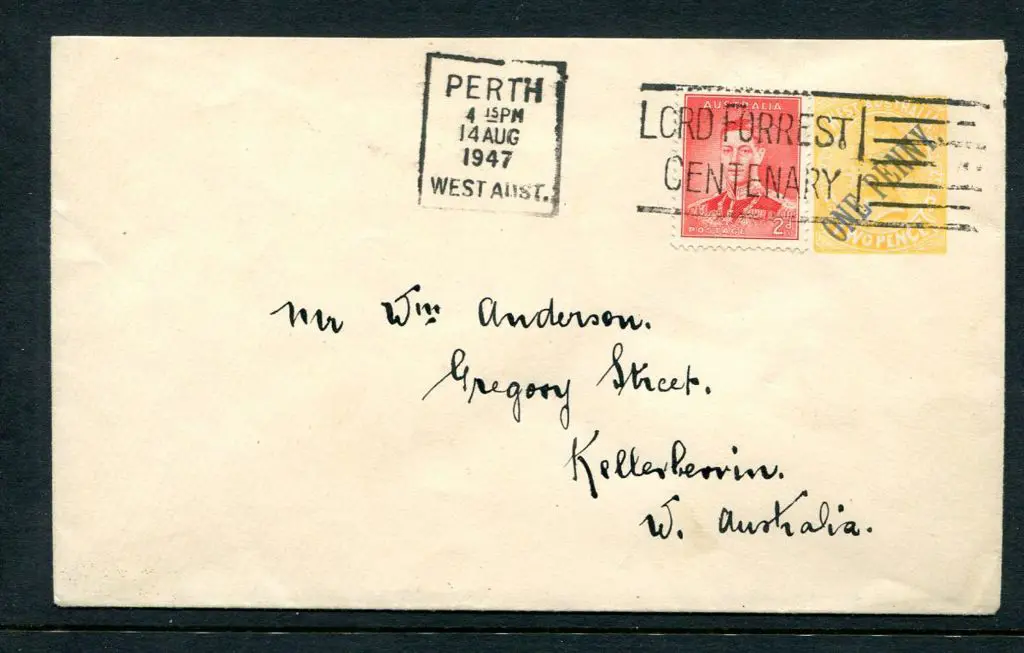 PERTH
4 15PM
14 AUG
1947
WEST AUST.
LORD FORREST
CENTENARY
AUSTRALIA
POSTAGE 2d
WEST AUSTRALIA
ONE PENNY
TWO PENCE
Mr Wm Anderson.
Gregory Street.
Kellerberrin.
W. Australia.